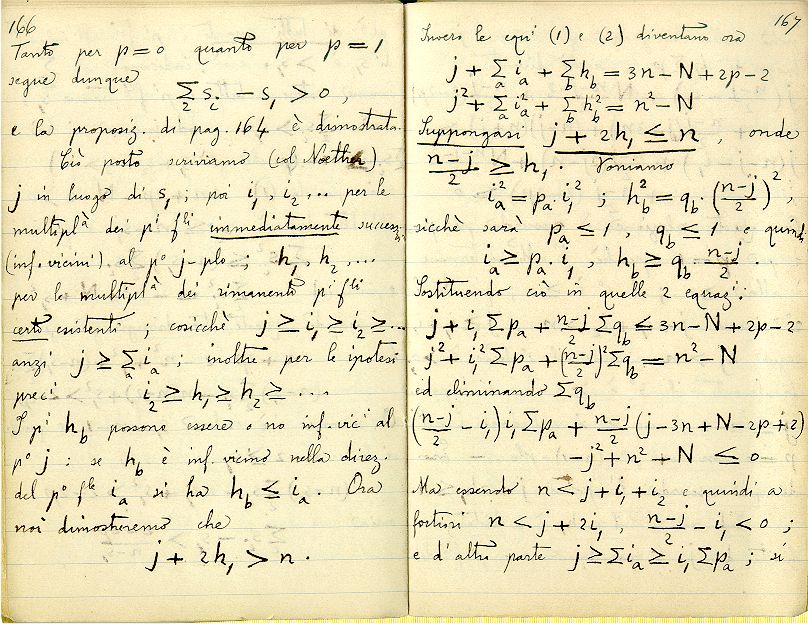 166
Tanto per p = 0 quanto per p = 1
segue dunque
∑₂ sᵢ − s₁ > 0 ,
e la proposiz. di pag. 164 è dimostrata.
Ciò posto scriviamo (col Noether)
j in luogo di s₁ ; poi i₁, i₂, ... per le
multiplᵃ dei pⁱ fˡⁱ immediatamente success.
(inf. vicini) al pᵒ j-plo ; h₁, h₂, ...
per le multiplᵃ dei rimanenti pⁱ fˡⁱ
certo esistenti ; cosicchè j ≥ i₁ ≥ i₂ ≥ ...
anzi j ≥ ∑ₐ iₐ ; inoltre per le ipotesi
precⁱ i₂ ≥ h₁ ≥ h₂ ≥ ...
I pⁱ h_b possono essere o no inf. vicⁱ al
pᵒ j : se h_b è inf. vicino nella direz.
del pᵒ fˡᵉ iₐ si ha h_b ≤ iₐ . Ora
noi dimostreremo che
j + 2h₁ > n .
167
Invero le eqⁿⁱ (1) e (2) diventano ora
j + ∑ₐ iₐ + ∑_b h_b = 3n − N + 2p − 2
j² + ∑ₐ iₐ² + ∑_b h_b² = n² − N
Suppongasi j + 2h₁ ≤ n , onde
(n−j)/2 ≥ h₁ . Poniamo
iₐ² = pₐ . i₁² ; h_b² = q_b . ((n−j)/2)² ,
sicchè sarà pₐ ≤ 1 , q_b ≤ 1 e quindi
iₐ ≥ pₐ . i₁ , h_b ≥ q_b . (n−j)/2 .
Sostituendo ciò in quelle 2 equazⁱ :
j + i₁ ∑pₐ + (n−j)/2 ∑q_b ≤ 3n − N + 2p − 2
j² + i₁² ∑pₐ + ((n−j)/2)² ∑q_b = n² − N
ed eliminando ∑q_b
((n−j)/2 − i₁) i₁ ∑pₐ + (n−j)/2 (j − 3n + N − 2p + 2)
− j² + n² + N ≤ 0
Ma essendo n < j + i₁ + i₂ e quindi a
fortiori n < j + 2i₁ , (n−j)/2 − i₁ < 0 ;
e d'altra parte j ≥ ∑iₐ ≥ i₁ ∑pₐ ; si